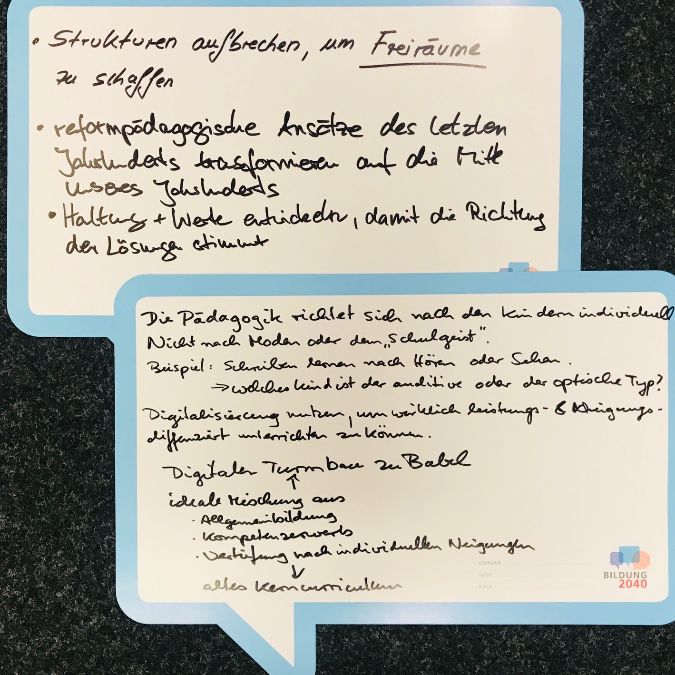 • Strukturen aufbrechen, um Freiräume
zu schaffen
• reformpädagogische Ansätze des letzten
Jahrhunderts transformieren auf die Mitte
unseres Jahrhunderts
• Haltung + Werte entwickeln, damit die Richtung
der Lösungen stimmt
Die Pädagogik richtet sich nach den Kindern individuell
Nicht nach Moden oder dem „Schulgeist".
Beispiel: Schreiben lernen nach Hören oder Sehen.
→ welches Kind ist der auditive oder der optische Typ?
Digitalisierung nutzen, um wirklich leistungs- & Neigungs-
differenziert unterrichten zu können.
Digitaler Turmbau zu Babel
↑
ideale Mischung aus
· Allgemeinbildung
· Kompetenzerwerb
· Vertiefung nach individuellen Neigungen
↓
altes Kerncurriculum
BILDUNG
2040